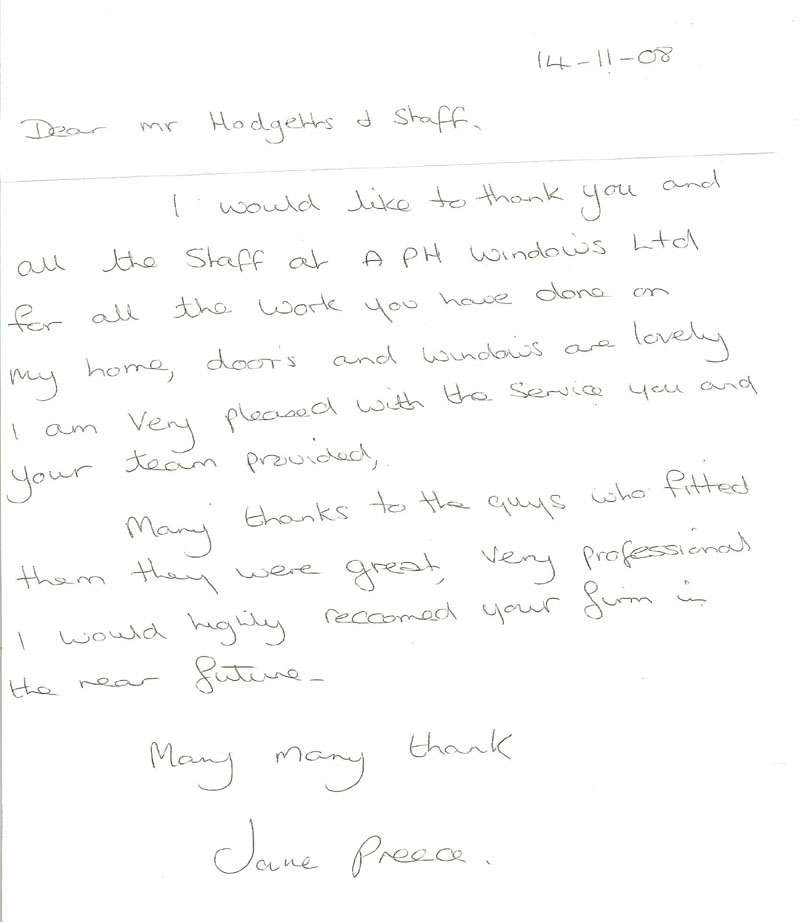 14-11-08
Dear mr Hodgetts & Staff.
I would like to thank you and
all the Staff at A PH Windows Ltd
for all the work you have done on
my home, doors and windows are lovely
I am Very pleased with the Service you and
your team provided,
Many thanks to the guys who fitted
them they were great, Very professional
I would highly reccomed your firm in
the near future-
Many many thank
Jane Preece.